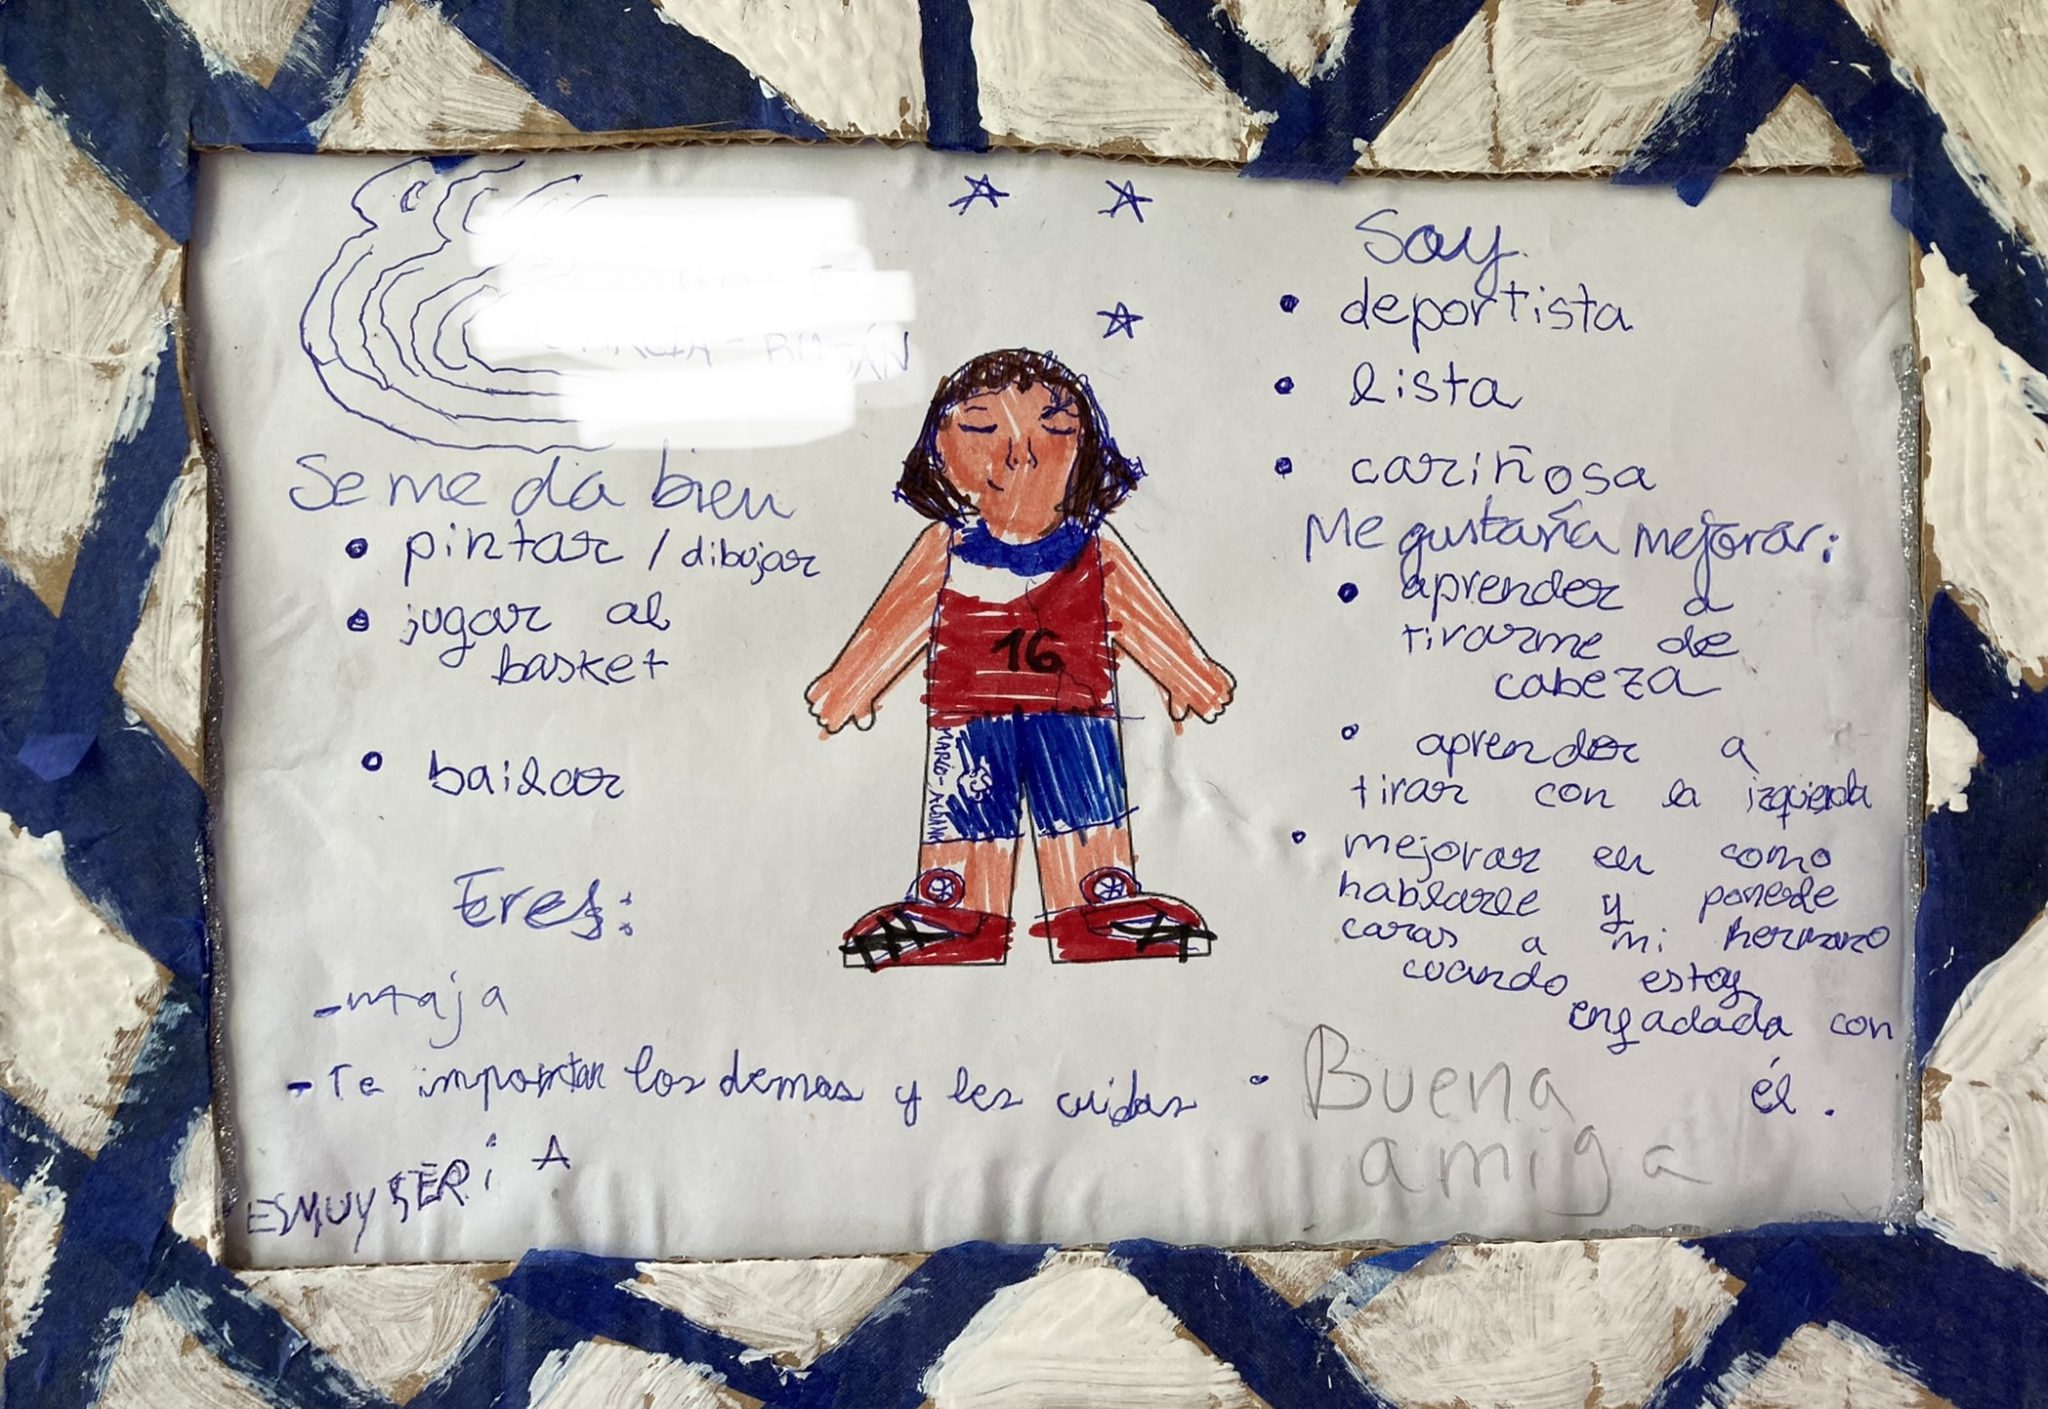 Se me da bien
• pintar / dibujar
• jugar al
basket
• bailar
Eres:
- maja
- Te importan los demas y les cuidas
ES MUY SERIA
16
Soy
• deportista
• lista
• cariñosa
Me gustaría mejorar:
• aprender a
tirarme de
cabeza
• aprender a
tirar con la izquierda
• mejorar en como
hablarle y ponerle
caras a mi hermano
cuando estoy
enfadada con
él.
• Buena
amiga